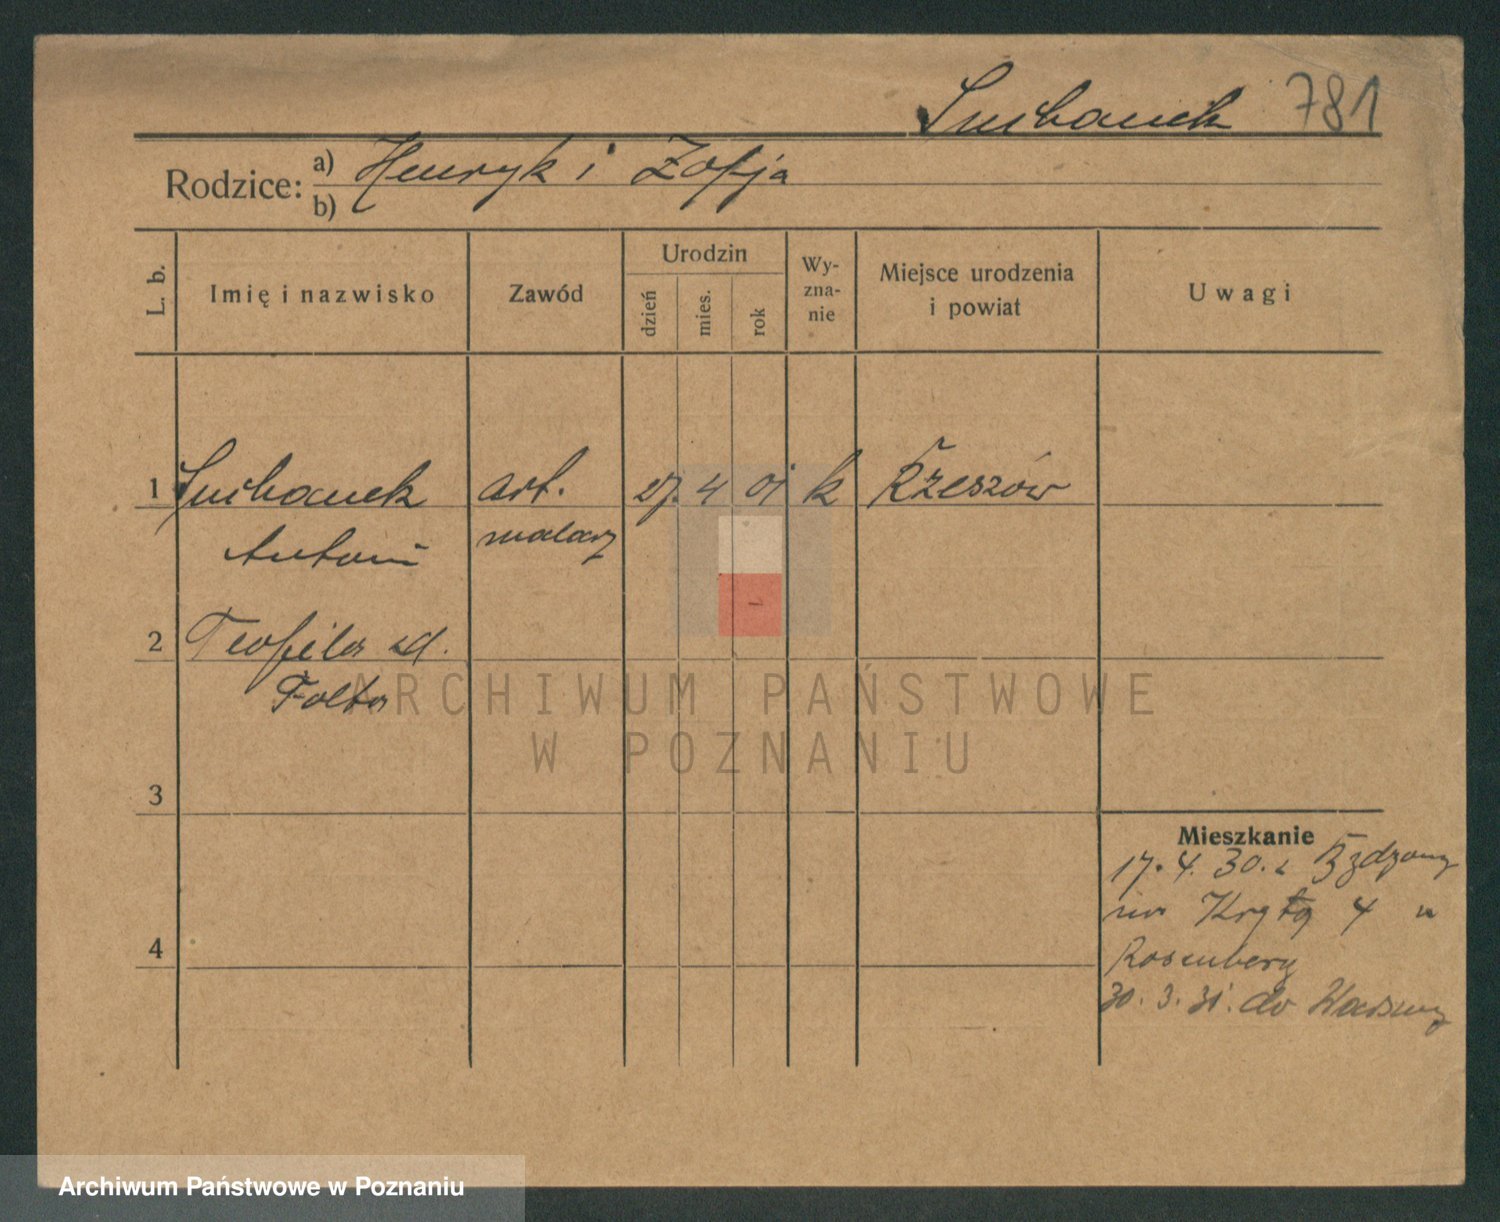 Suchanek 781
Rodzice: a) Henryk i Zofja
b)
L. b. Imię i nazwisko Zawód Urodzin dzień mies. rok Wy-zna-nie Miejsce urodzenia i powiat Uwagi
1 Suchanek art. 27. 4 01 k Rzeszów
Antoni malarz
2 Teofila zd.
Folta
ARCHIWUM PAŃSTWOWE
W POZNANIU
3
Mieszkanie
17. 4. 30. z
na 4 u
4
Rosenberg
30. 3. 31. do Warszawy
Archiwum Państwowe w Poznaniu